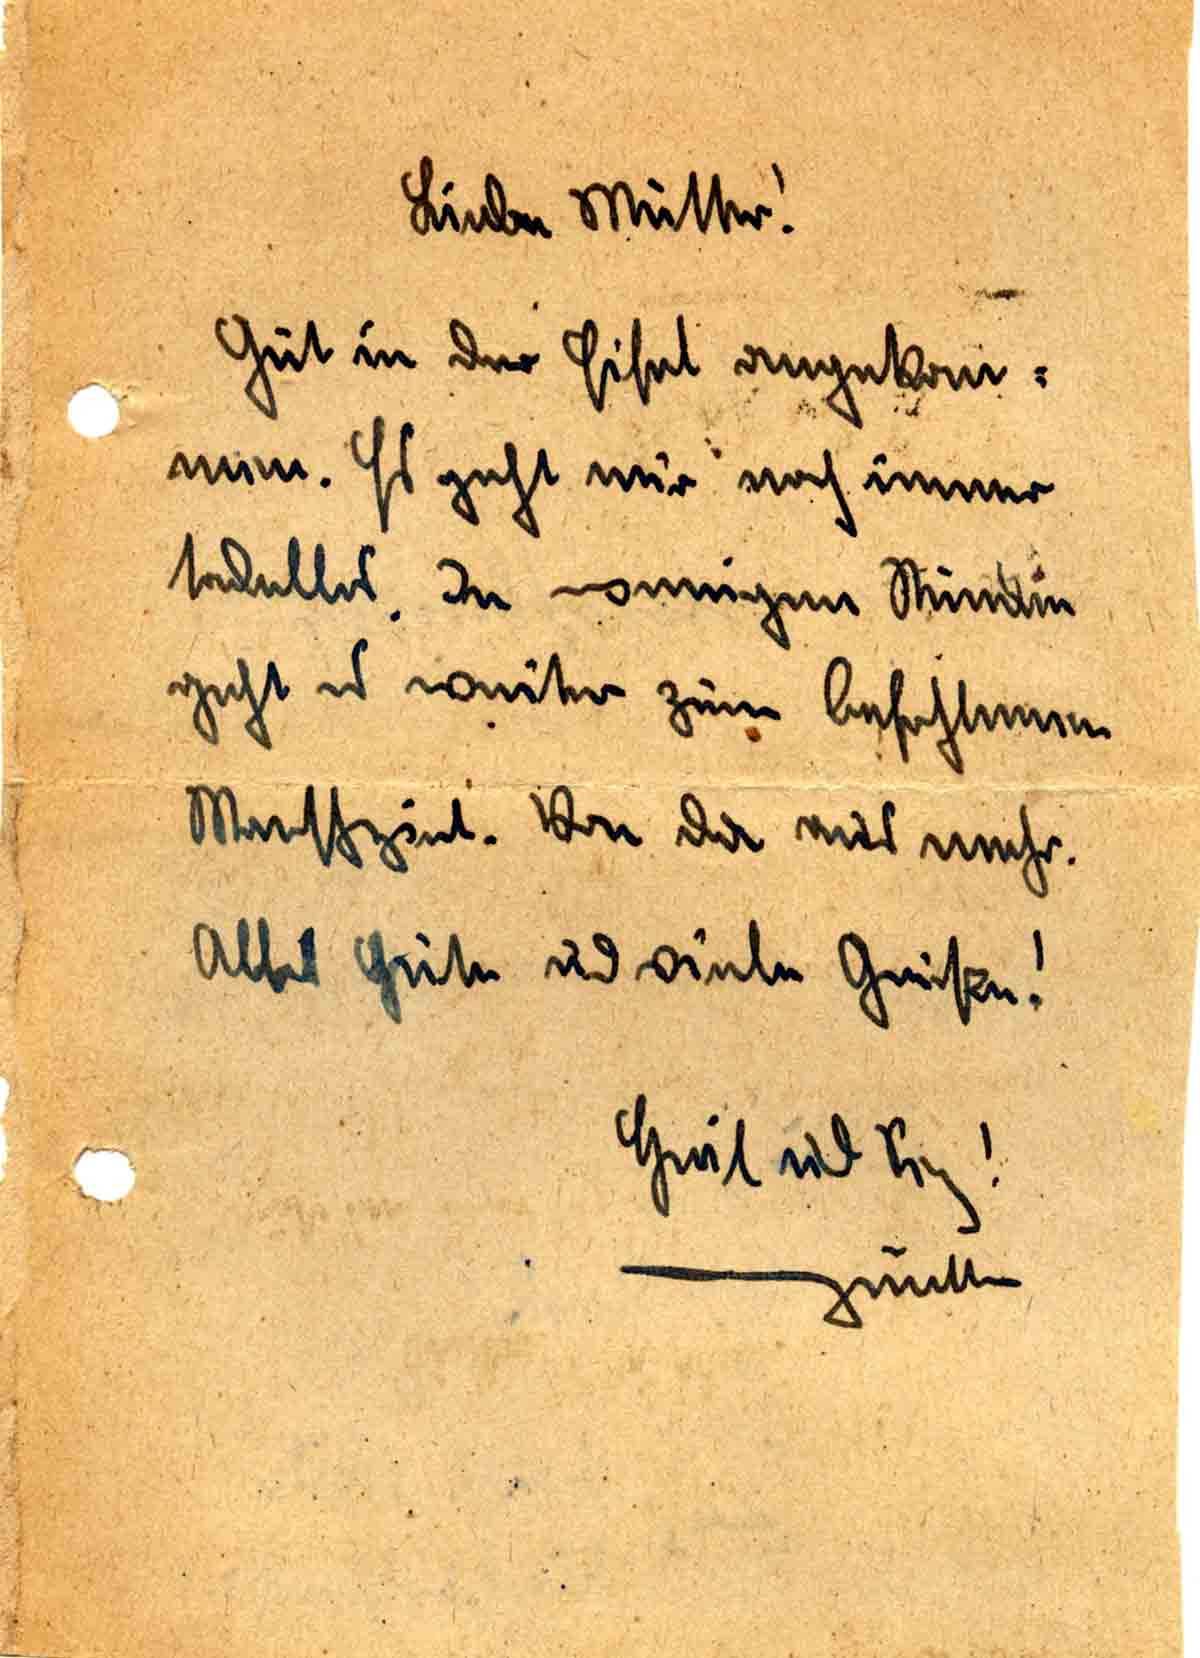 Liebe Mutter!
Gut in der Eifel angekom=
men. Es geht mir noch immer
tadellos. In wenigen Minuten
geht es weiter zum befohlenen
Marschziel. Von da aus mehr.
Alles Gute und viele Grüße!
Heil und Sieg!